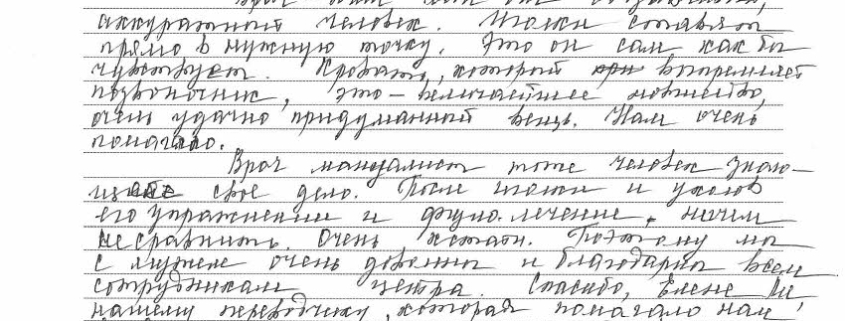 аккуратный человек. Иголки ставят
прямо в нужную точку. Это он сам как бы
чувствует. Кровать, который выпремляет
позвоночник, это – величайшее новшество,
очень удачно придуманной вещь. Нам очень
помагало.
Врач мануалист тоже человек знаю-
свое дело. После иголки и уколов
его упражнении и физио. лечение, ничем
не сравнить. Очень кстати. Поэтому мы
с мужем очень довольны и благодарны всем
сотрудникам центра. Спасибо, Елене Ли,
нашему переводчику, которая помагало нам